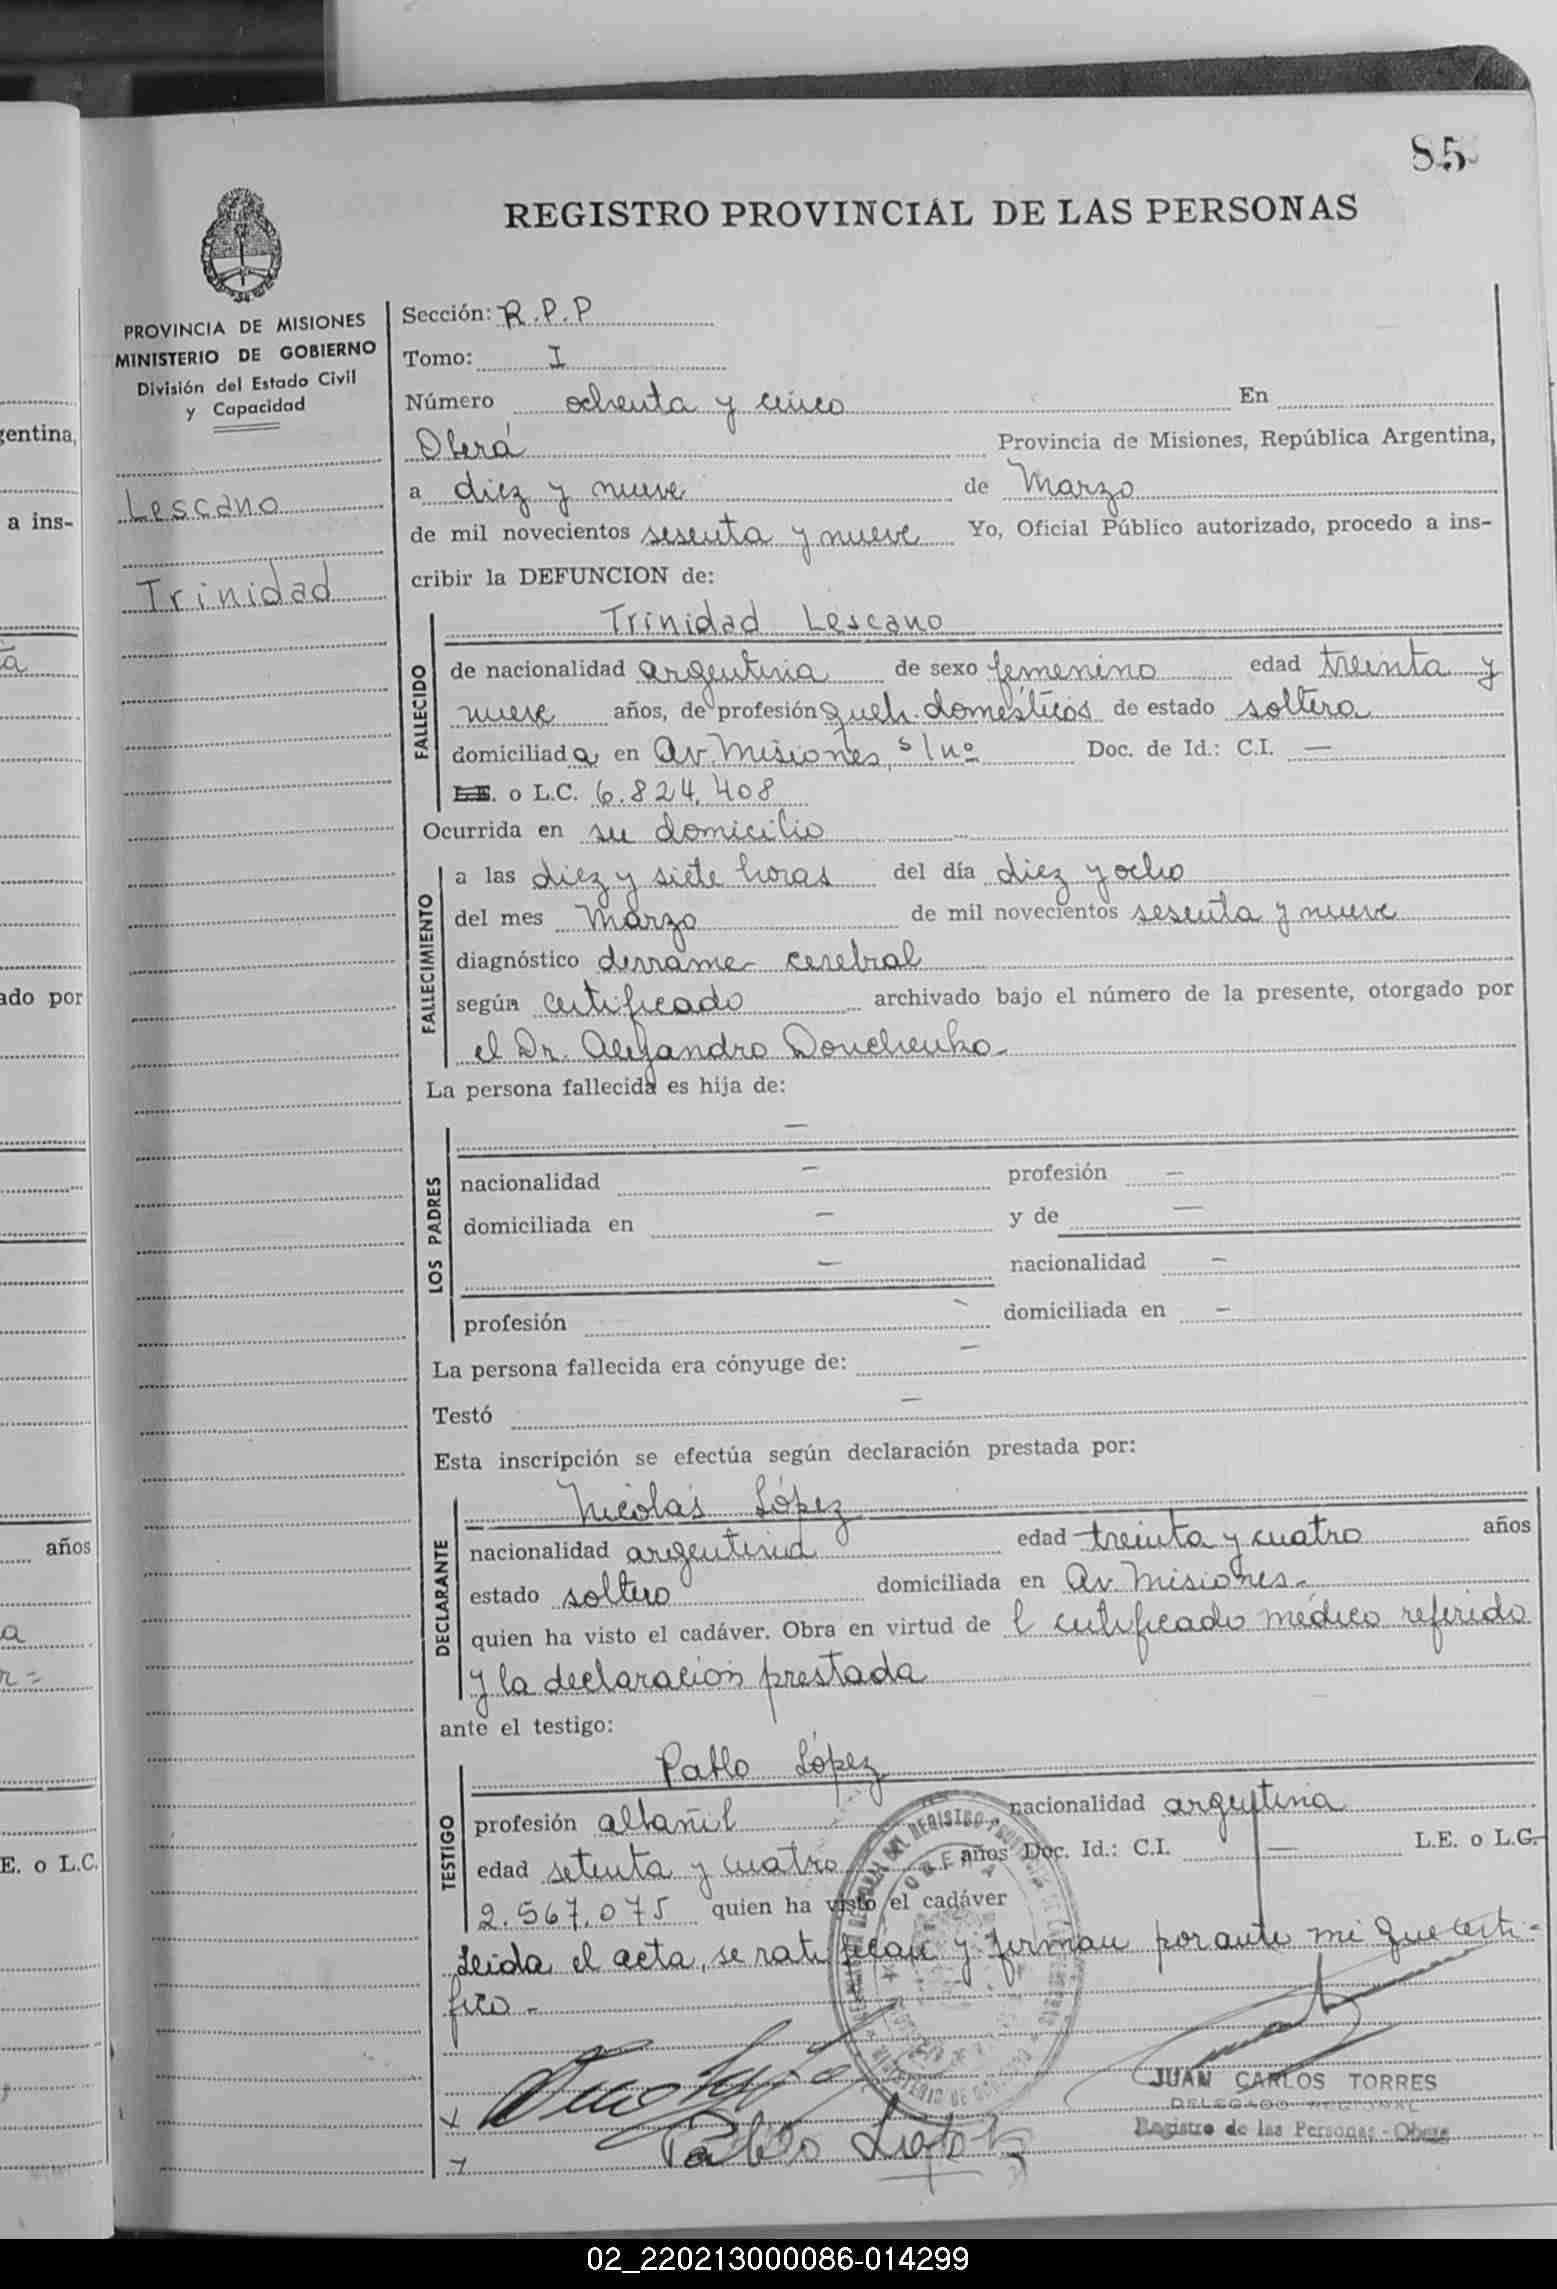 85
REGISTRO PROVINCIAL DE LAS PERSONAS
PROVINCIA DE MISIONES
MINISTERIO DE GOBIERNO
División del Estado Civil
y Capacidad
Lescano
Trinidad
Sección: R.P.P
Tomo: I
Número ochenta y cinco En
Oberá Provincia de Misiones, República Argentina,
a diez y nueve de Marzo
de mil novecientos sesenta y nueve Yo, Oficial Público autorizado, procedo a ins-
cribir la DEFUNCION de:
FALLECIDO
Trinidad Lescano
de nacionalidad argentina de sexo femenino edad treinta y
nueve años, de profesión queh. domésticos de estado soltera
domiciliada en Av. Misiones, s/nº Doc. de Id.: C.I. —
L.E. o L.C. 6.824.408
Ocurrida en su domicilio
FALLECIMIENTO
a las diez y siete horas del día diez y ocho
del mes Marzo de mil novecientos sesenta y nueve
diagnóstico derrame cerebral
según certificado archivado bajo el número de la presente, otorgado por
el Dr. Alejandro Donchenko-
La persona fallecida es hija de:
LOS PADRES
—
nacionalidad — profesión —
domiciliada en — y de —
— nacionalidad —
profesión - domiciliada en —
La persona fallecida era cónyuge de: —
Testó —
Esta inscripción se efectúa según declaración prestada por:
DECLARANTE
Nicolás López
nacionalidad argentina edad treinta y cuatro años
estado soltero domiciliada en Av. Misiones-
quien ha visto el cadáver. Obra en virtud de l certificado médico referido
y la declaración prestada
ante el testigo:
TESTIGO
Pablo López
profesión albañil nacionalidad argentina
edad setenta y cuatro años Doc. Id.: C.I. — L.E. o L.C.
2.567.075 quien ha visto el cadáver
Leida el acta, se ratifican y firman por ante mi que certi-
fico-
JUAN CARLOS TORRES
DELEGADO REGIONAL
Registro de las Personas - Oberá
Pablo
gentina,
a ins-
ado por
años
E. o L.C.
02_220213000086-014299